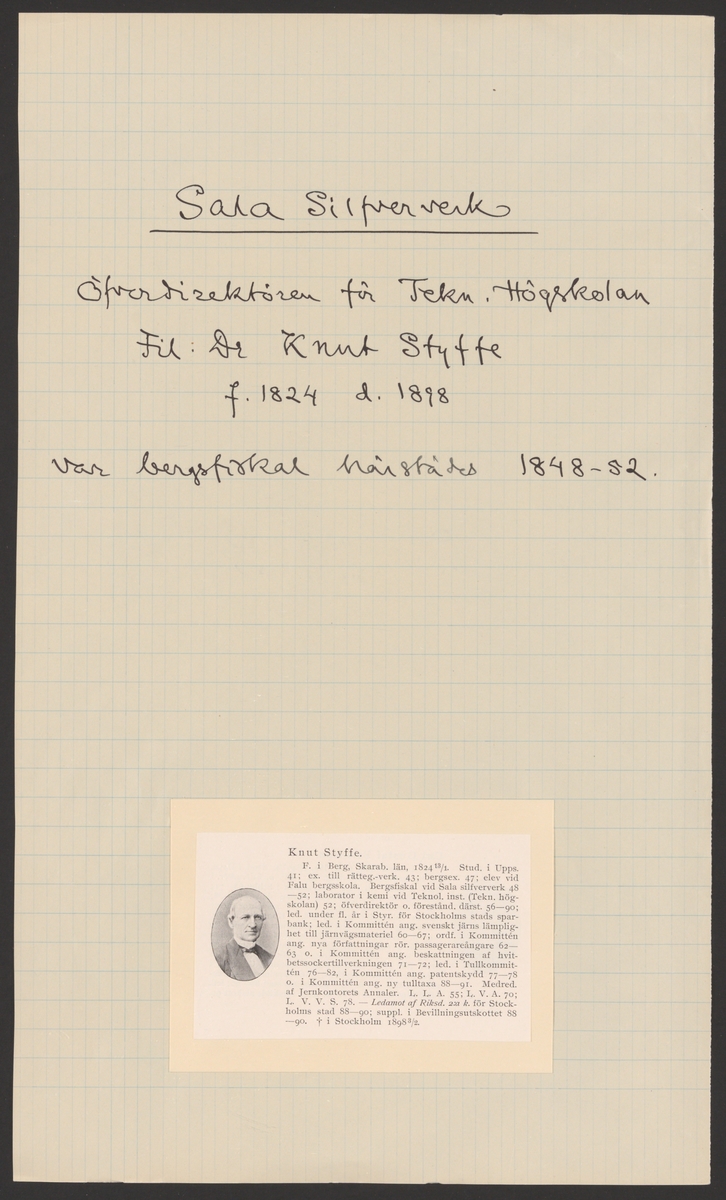 Sala Silfververk
Öfverdirektören för Tekn. Högskolan
Fil: Dr Knut Styffe
f. 1824 d. 1898
var bergsfiskal härstädes 1848-52.
Knut Styffe.
F. i Berg, Skarab. län, 1824 13/1. Stud. i Upps.
41; ex. till rätteg.-verk. 43; bergsex. 47; elev vid
Falu bergsskola. Bergsfiskal vid Sala silfververk 48
—52; laborator i kemi vid Teknol. inst. (Tekn. hög-
skolan) 52; öfverdirektör o. förestånd. därst. 56—90;
led. under fl. år i Styr. för Stockholms stads spar-
bank; led. i Kommittén ang. svenskt järns lämplig-
het till järnvägsmateriel 60—67; ordf. i Kommittén
ang. nya författningar rör. passagerareångare 62—
63 o. i Kommittén ang. beskattningen af hvit-
betssockertillverkningen 71—72; led. i Tullkommit-
tén 76—82, i Kommittén ang. patentskydd 77—78
o. i Kommittén ang. ny tulltaxa 88—91. Medred.
af Jernkontorets Annaler. L. L. A. 55; L. V. A. 70;
L. V. V. S. 78. — Ledamot af Riksd. 2:a k. för Stock-
holms stad 88—90; suppl. i Bevillningsutskottet 88
—90. † i Stockholm 1898 3/2.